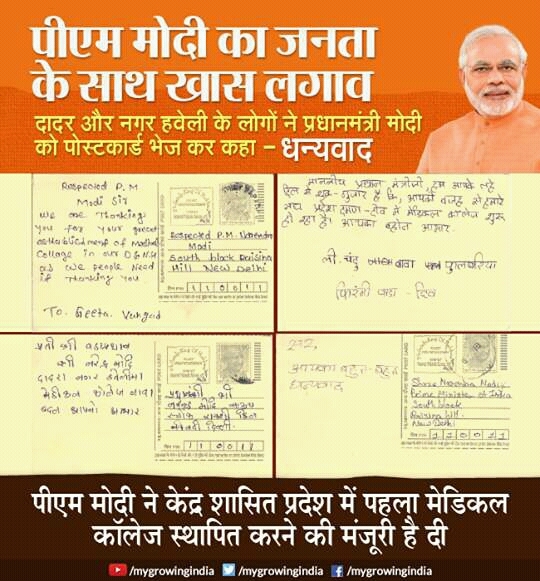 पीएम मोदी का जनता
के साथ खास लगाव
दादर और नगर हवेली के लोगों ने प्रधानमंत्री मोदी
को पोस्टकार्ड भेज कर कहा – धन्यवाद
Respected P.M
Modi Sir
We are Thanking
you for your great
establishment of Medical
College in our D & NH
as we people need
it Thanking you
To. Geeta. Vangad
Respected P.M. Narendra
Modi
South block Raisina
Hill New Delhi
पिन PIN
110011
माननीय प्रधान मंत्रीजी हम आपके तहे
दिल से शुक्र-गुजार है कि, आपकी वजह से हमारे
संघ प्रदेश दमण-दीव में मेडिकल कॉलेज शुरू
हो रहा है। आपका बहोत आभार.
ली. चंदु
दीव
प्रती श्री
श्री नरेन्द्र मोदि
दादरा नगर हवेली
मेडीकल कोलेज
आपना आभार
प्रधानमंत्री श्री
नरेन्द्र मोदि
पिन PIN
सर,
आपका बहुत-बहुत
धन्यवाद
Shree Narendra Modi
Prime Minister of India
South block
Raising hill.
New Delhi
पीएम मोदी ने केंद्र शासित प्रदेश में पहला मेडिकल
कॉलेज स्थापित करने की मंजूरी है दी
/mygrowingindia /mygrowingindia /mygrowingindia